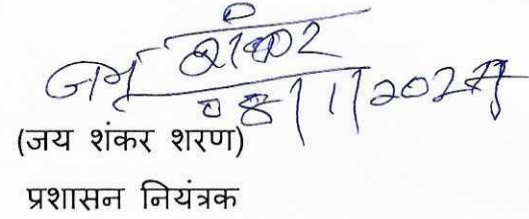 जय शंकर
08/1/2024
(जय शंकर शरण)
प्रशासन नियंत्रक